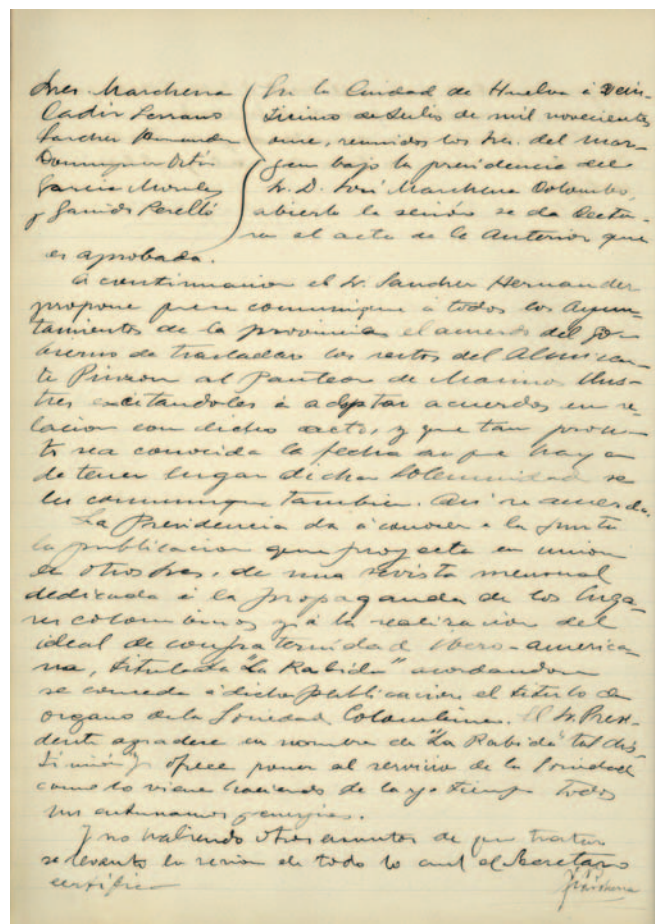 Sres. Marchena
Cadir Serrano
Sanchez Hernandez
Dominguez Ortiz
Garcia Morales
y Garrido Perelló
En la Ciudad de Huelva á vein-
tiuno de Julio de mil novecientos
once, reunidos los Sres. del mar-
gen bajo la presidencia del
Sr. D. José Marchena Colombo,
abierta la sesión se da lectu-
ra el acta de la anterior que
es aprobada.
A continuacion el Sr. Sanchez Hernandez
propone se comunique á todos los Ayun-
tamientos de la provincia el acuerdo del go-
bierno de trasladar los restos del Almiran-
te Pinzon al Panteon de Marinos Ilus-
tres excitandoles á adoptar acuerdos en re-
lacion con dicho acto, y que tan pron-
to sea conocida la fecha en que haya
de tener lugar dicha solemnidad se
les comunique tambien. Asi se acuerda.
La Presidencia da á conocer a la Junta
la publicacion que proyecta en union
de otros Sres. de una revista mensual
dedicada á la propaganda de los luga-
res colombinos y á la realizacion del
ideal de confraternidad ibero-america-
na, titulada "La Rabida" acordandose
se conceda á dicha publicacion el titulo de
organo de la Sociedad Colombina. El Sr. Presi-
dente agradece en nombre de "La Rabida" tal dis-
tinción y ofrece poner al servicio de la Sociedad
como lo viene haciendo de largo tiempo todos
sus entusiasmos y energias.
Y no habiendo otros asuntos de que tratar
se levantó la sesion de todo lo cual el Secretario
certifico
J. Marchena